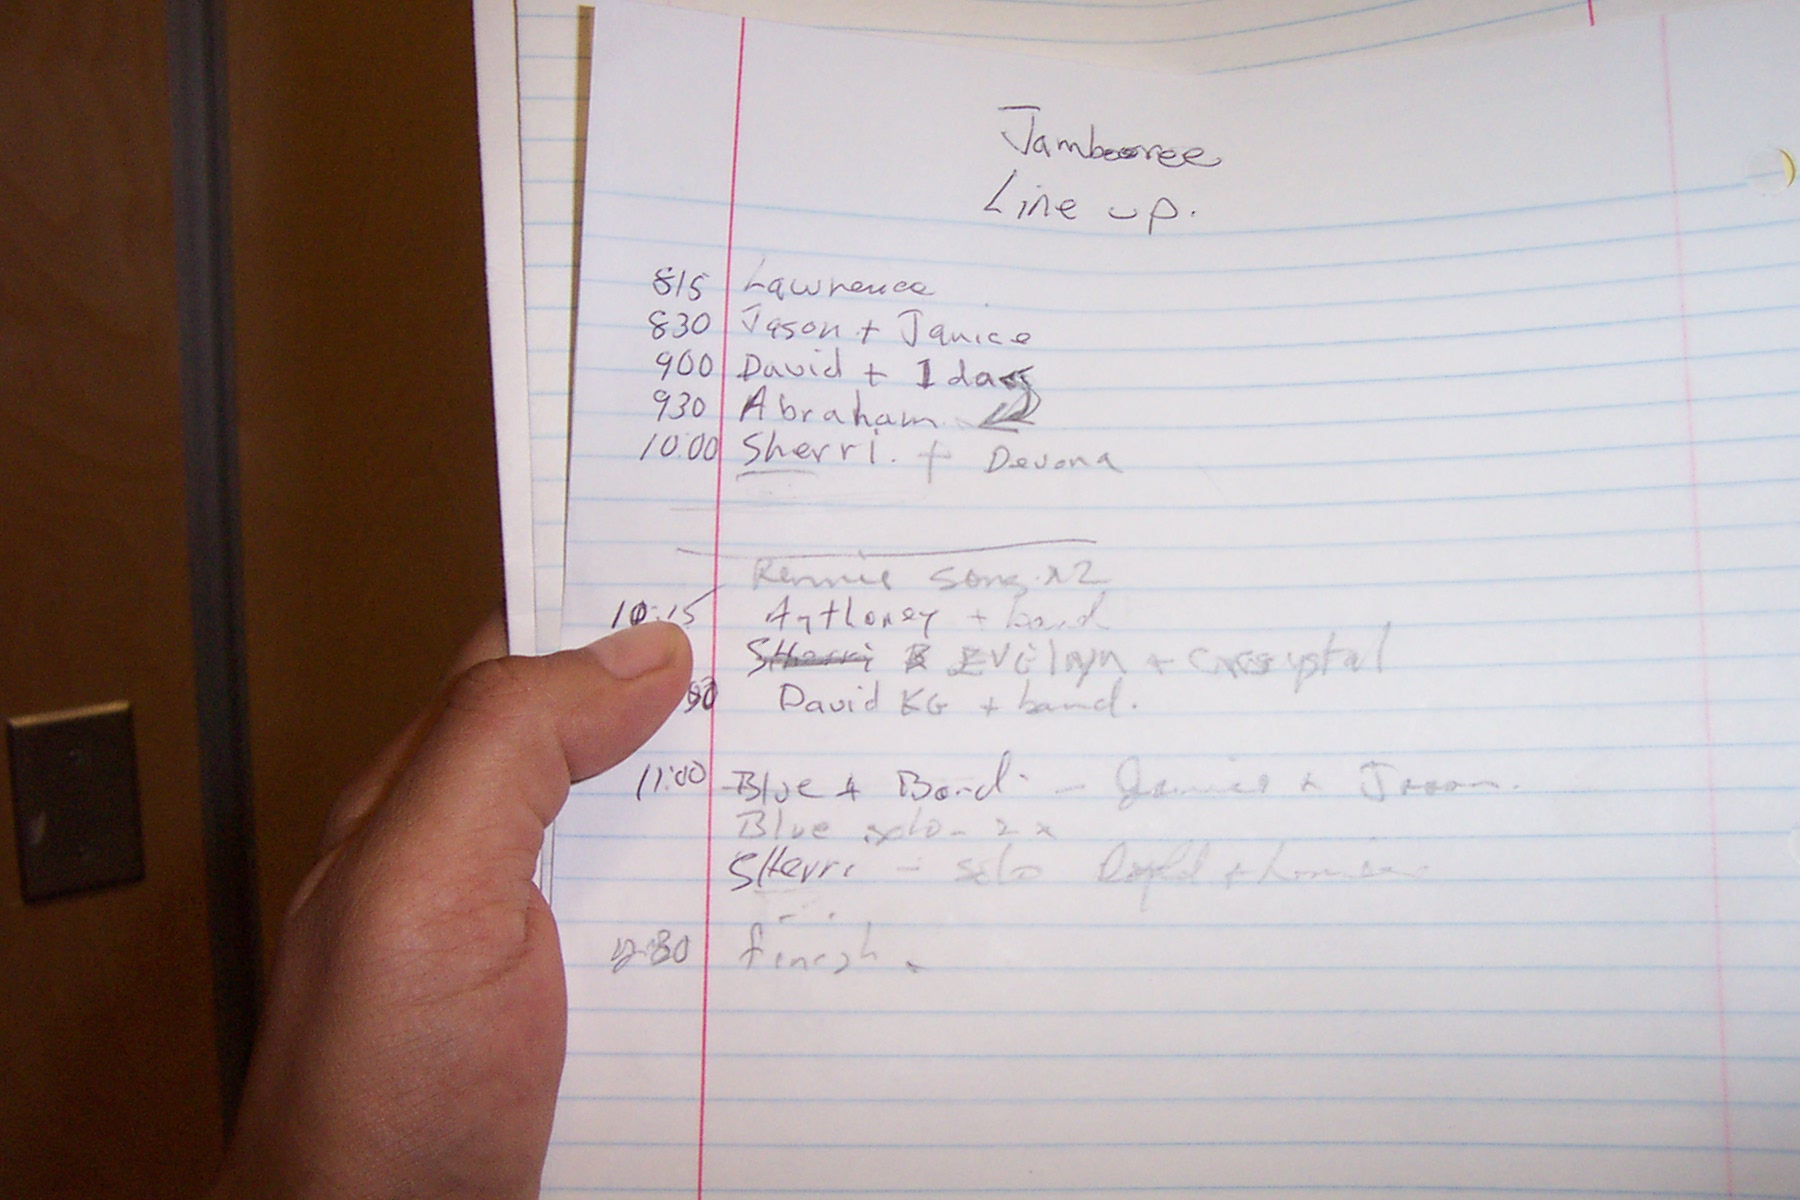 Jamboree
Line up.
815 Lawrence
830 Jason + Janice
900 David + Ida
930 Abraham
10:00 Sherri. + Devona
Rennie song x2
10:15 Anthoney + band
Sherri Evilyn + Crystal
30 David KG + band.
11:00 Blue + Band - Janice + Jason.
Blue solo - 2x
SHerri - solo
12:30 finish.